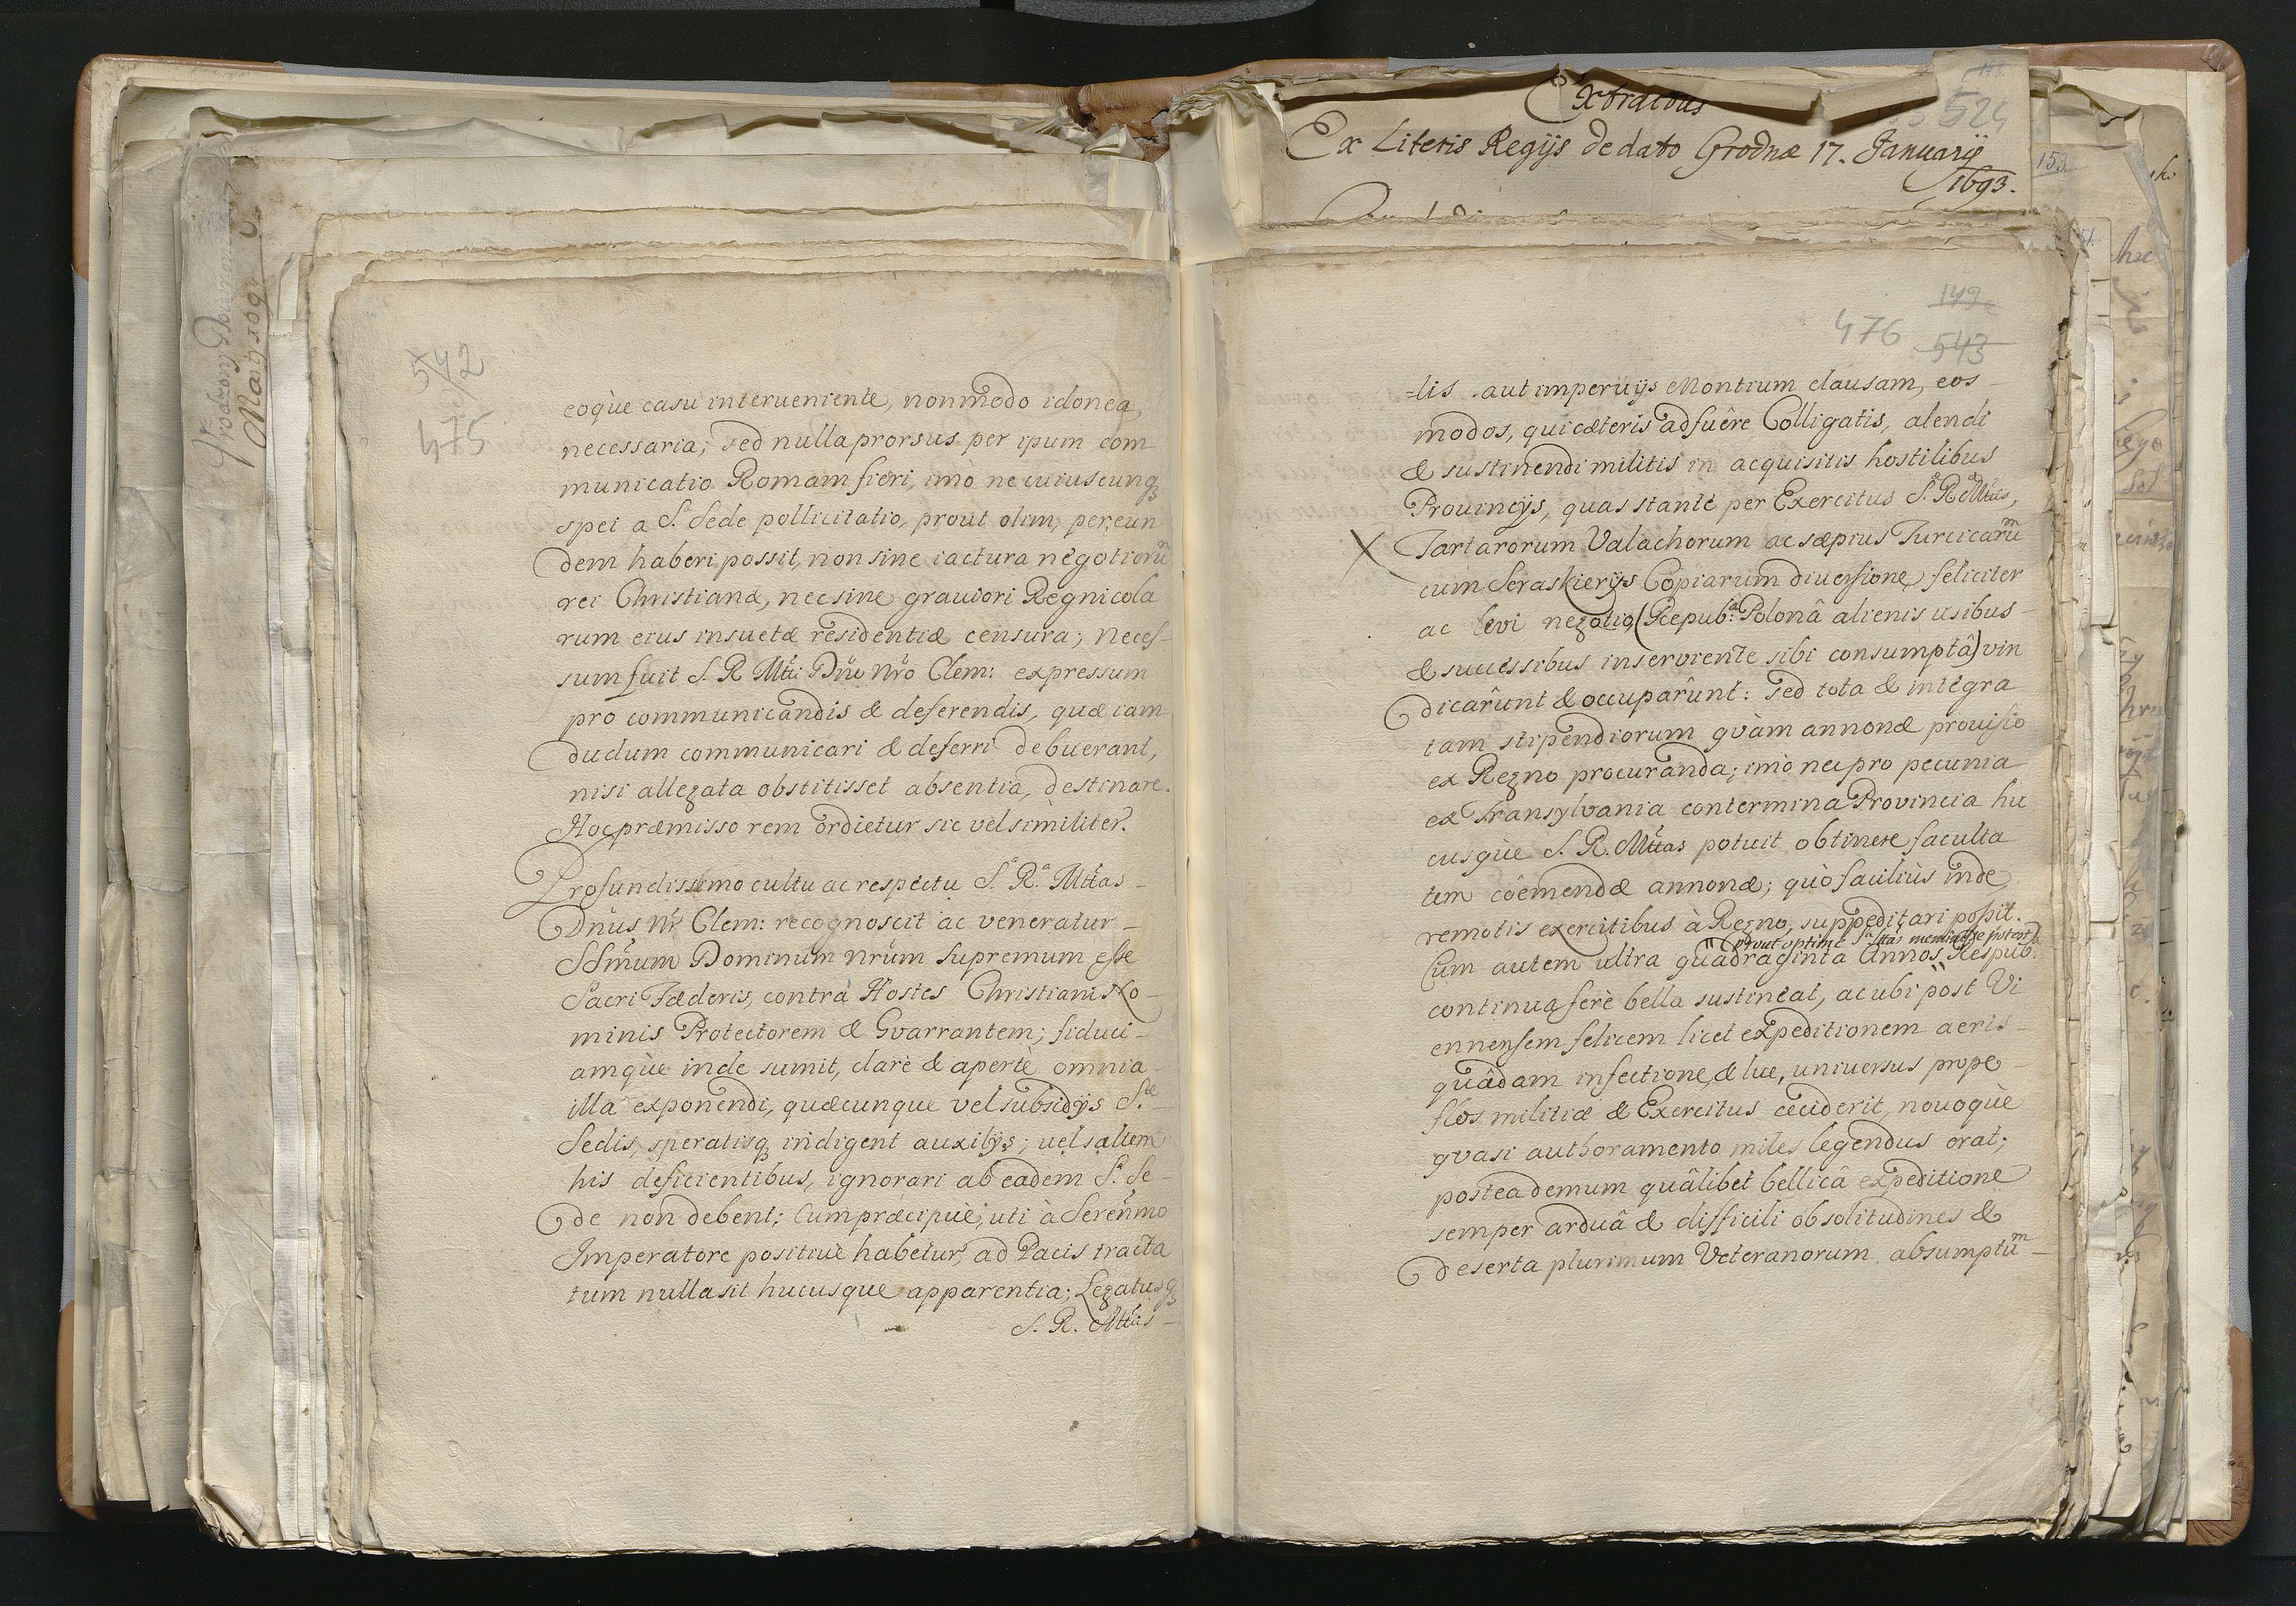 542
475
eoque casu interueniente, non modo idonea,
necessaria; sed nulla prorsus per ipum com
municatio Romam fieri, imò ne cuiuscunq
spei a S. Sede pollicitatio, prout olim, per eun
dem haberi possit, non sine iactura negotiorũ
rei Christianæ, nec sine graviori Regnicola
rum eius insuetæ residentiæ censura; neces-
sum fuit S. R. Mtti Dno Nro Clem: expressum
pro communicandis & deferendis, quæ iam
dudum communicari & deferri debuerant,
nisi allegata obstitisset absentia, destinare.
Hoc præmisso rem ordietur sic vel similiter.
Profundissimo cultu ac respectu S. R. Mttas
Dnus Nr Clem: recognoscit ac veneratur
SSmum Dominum nrum supremum esse
Sacri Fœderis, contra Hostes Christiani No-
minis Protectorem & Gvarrantem; fiduci-
amque inde sumit, clarè & apertè omnia
illa exponendi, quæcunque vel subsidijs S.æ
Sedis, speratisq indigent auxilijs; uel saltem
his deficientibus, ignorari ab eadem S. Se-
de non debent; Cum præcipuè, uti à Serenmo
Imperatore positivè habetur, ad Pacis tracta
tum nulla sit hucusque apparentia; Legatusq
S. R. Mttis
Extractus
Ex Literis Regijs de dato Grodnæ 17. Januarij
1693.
524
153
149
476 543
-lis aut imperuijs Montium clausam, eos
modos, qui cæteris adfuêre Colligatis, alendi
& sustinendi militis in acquisitis hostilibus
Provincijs, quas stante per Exercitus S. R. Mttis,
X Tartarorum Valachorum ac sæpius Turcicarũ
cum Seraskierijs Copiarum diversione, feliciter
ac levi negotio, (Repub: Polonâ alienis usibus
& successibus inserviente sibi consumptâ) vin
dicârunt & occupârunt: sed tota & integra
tam stipendiorum qvàm annonæ provisio
ex Regno procuranda; imò nec pro pecunia
ex Transylvania contermina Provincia hu
cusque S. R. Mttas potuit obtinere faculta
tem coemendæ annonæ; quò faciliùs inde,
remotis exercitibus à Regno, suppeditari possit.
prout optime Sa Sttas meminisse potest
Cum autem ultra quadraginta Annos Respub:
continua ferè bella sustineat, ac ubi post Vi
ennensem felicem licet expeditionem aeris
quâdam infectione, & lue, universus prope
flos militiæ & Exercitus ceciderit, nouoque
qvasi authoramento miles legendus erat;
postea demum quâlibet bellicâ expeditione
semper arduâ & difficili ob solitudines &
deserta plurimum Veteranorum absumptũ